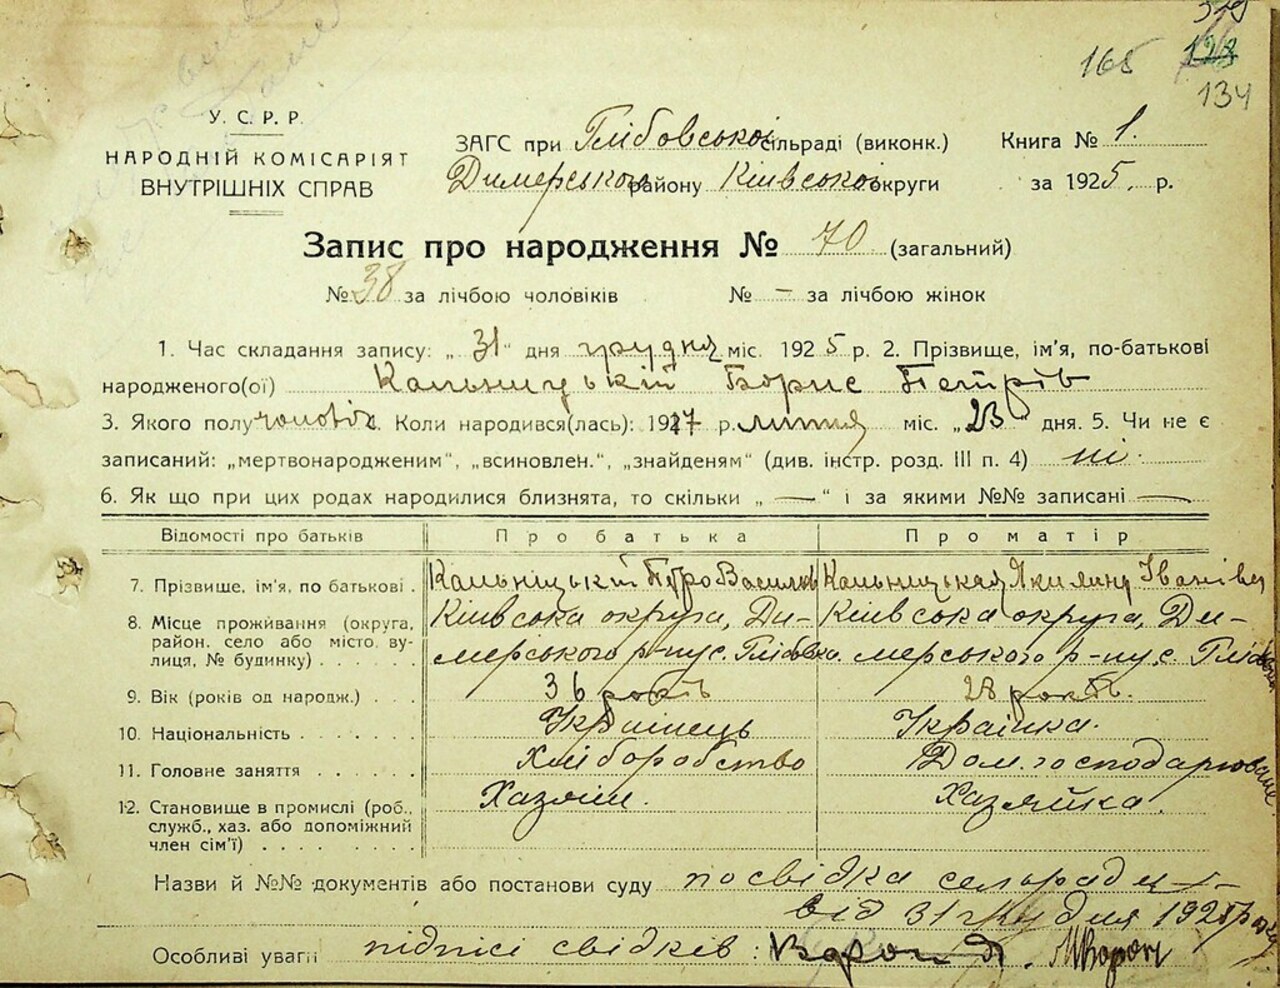 319
165 128
134
У. С. Р. Р.
НАРОДНІЙ КОМІСАРІЯТ
ВНУТРІШНІХ СПРАВ
ЗАГС при Глібовської сільраді (виконк.) Книга № 1.
Димерського району Київської округи за 1925. р.
Запис про народження № 70 (загальний)
№ 38 за лічбою чоловіків № — за лічбою жінок
1. Час складання запису: „31“ дня грудня міс. 1925 р. 2. Прізвище, ім'я, по-батькові
народженого(ої) Кальницький Борис Петрів
3. Якого полу чоловіч. Коли народився(лась): 1917 р. липня міс. „23“ дня. 5. Чи не є
записаний: „мертвонародженим“, „всиновлен.“, „знайденям“ (див. інстр. розд. III п. 4) ні.
6. Як що при цих родах народилися близнята, то скільки „—“ і за якими №№ записані —
Відомості про батьків Про батька Про матір
7. Прізвище, ім'я, по батькові . Кальніцькій Петро Васильов Кальницькая Якилина Іванівна
8. Місце проживання (округа, Київська округа, Ди- Київська округа, Ди-
район. село або місто, ву- мерського р-ну с. Глібовка. мерського р-ну, с. Глібовка
лиця, № будинку) . . . . . .
9. Вік (років од народж.) . . . 36 років 28 років.
10. Національність . . . . . . . Українець Українка.
11. Головне заняття . . . . . . Хліборобство Дом. господарюванє
12. Становище в промислі (роб., Хазяїн. Хазяйка.
служб., хаз. або допоміжний
член сім'ї) . . . . . . . .
Назви й №№ документів або постанови суду посвідка сельради
від 31 грудня 1925 року
Особливі уваги підпісі свідків: